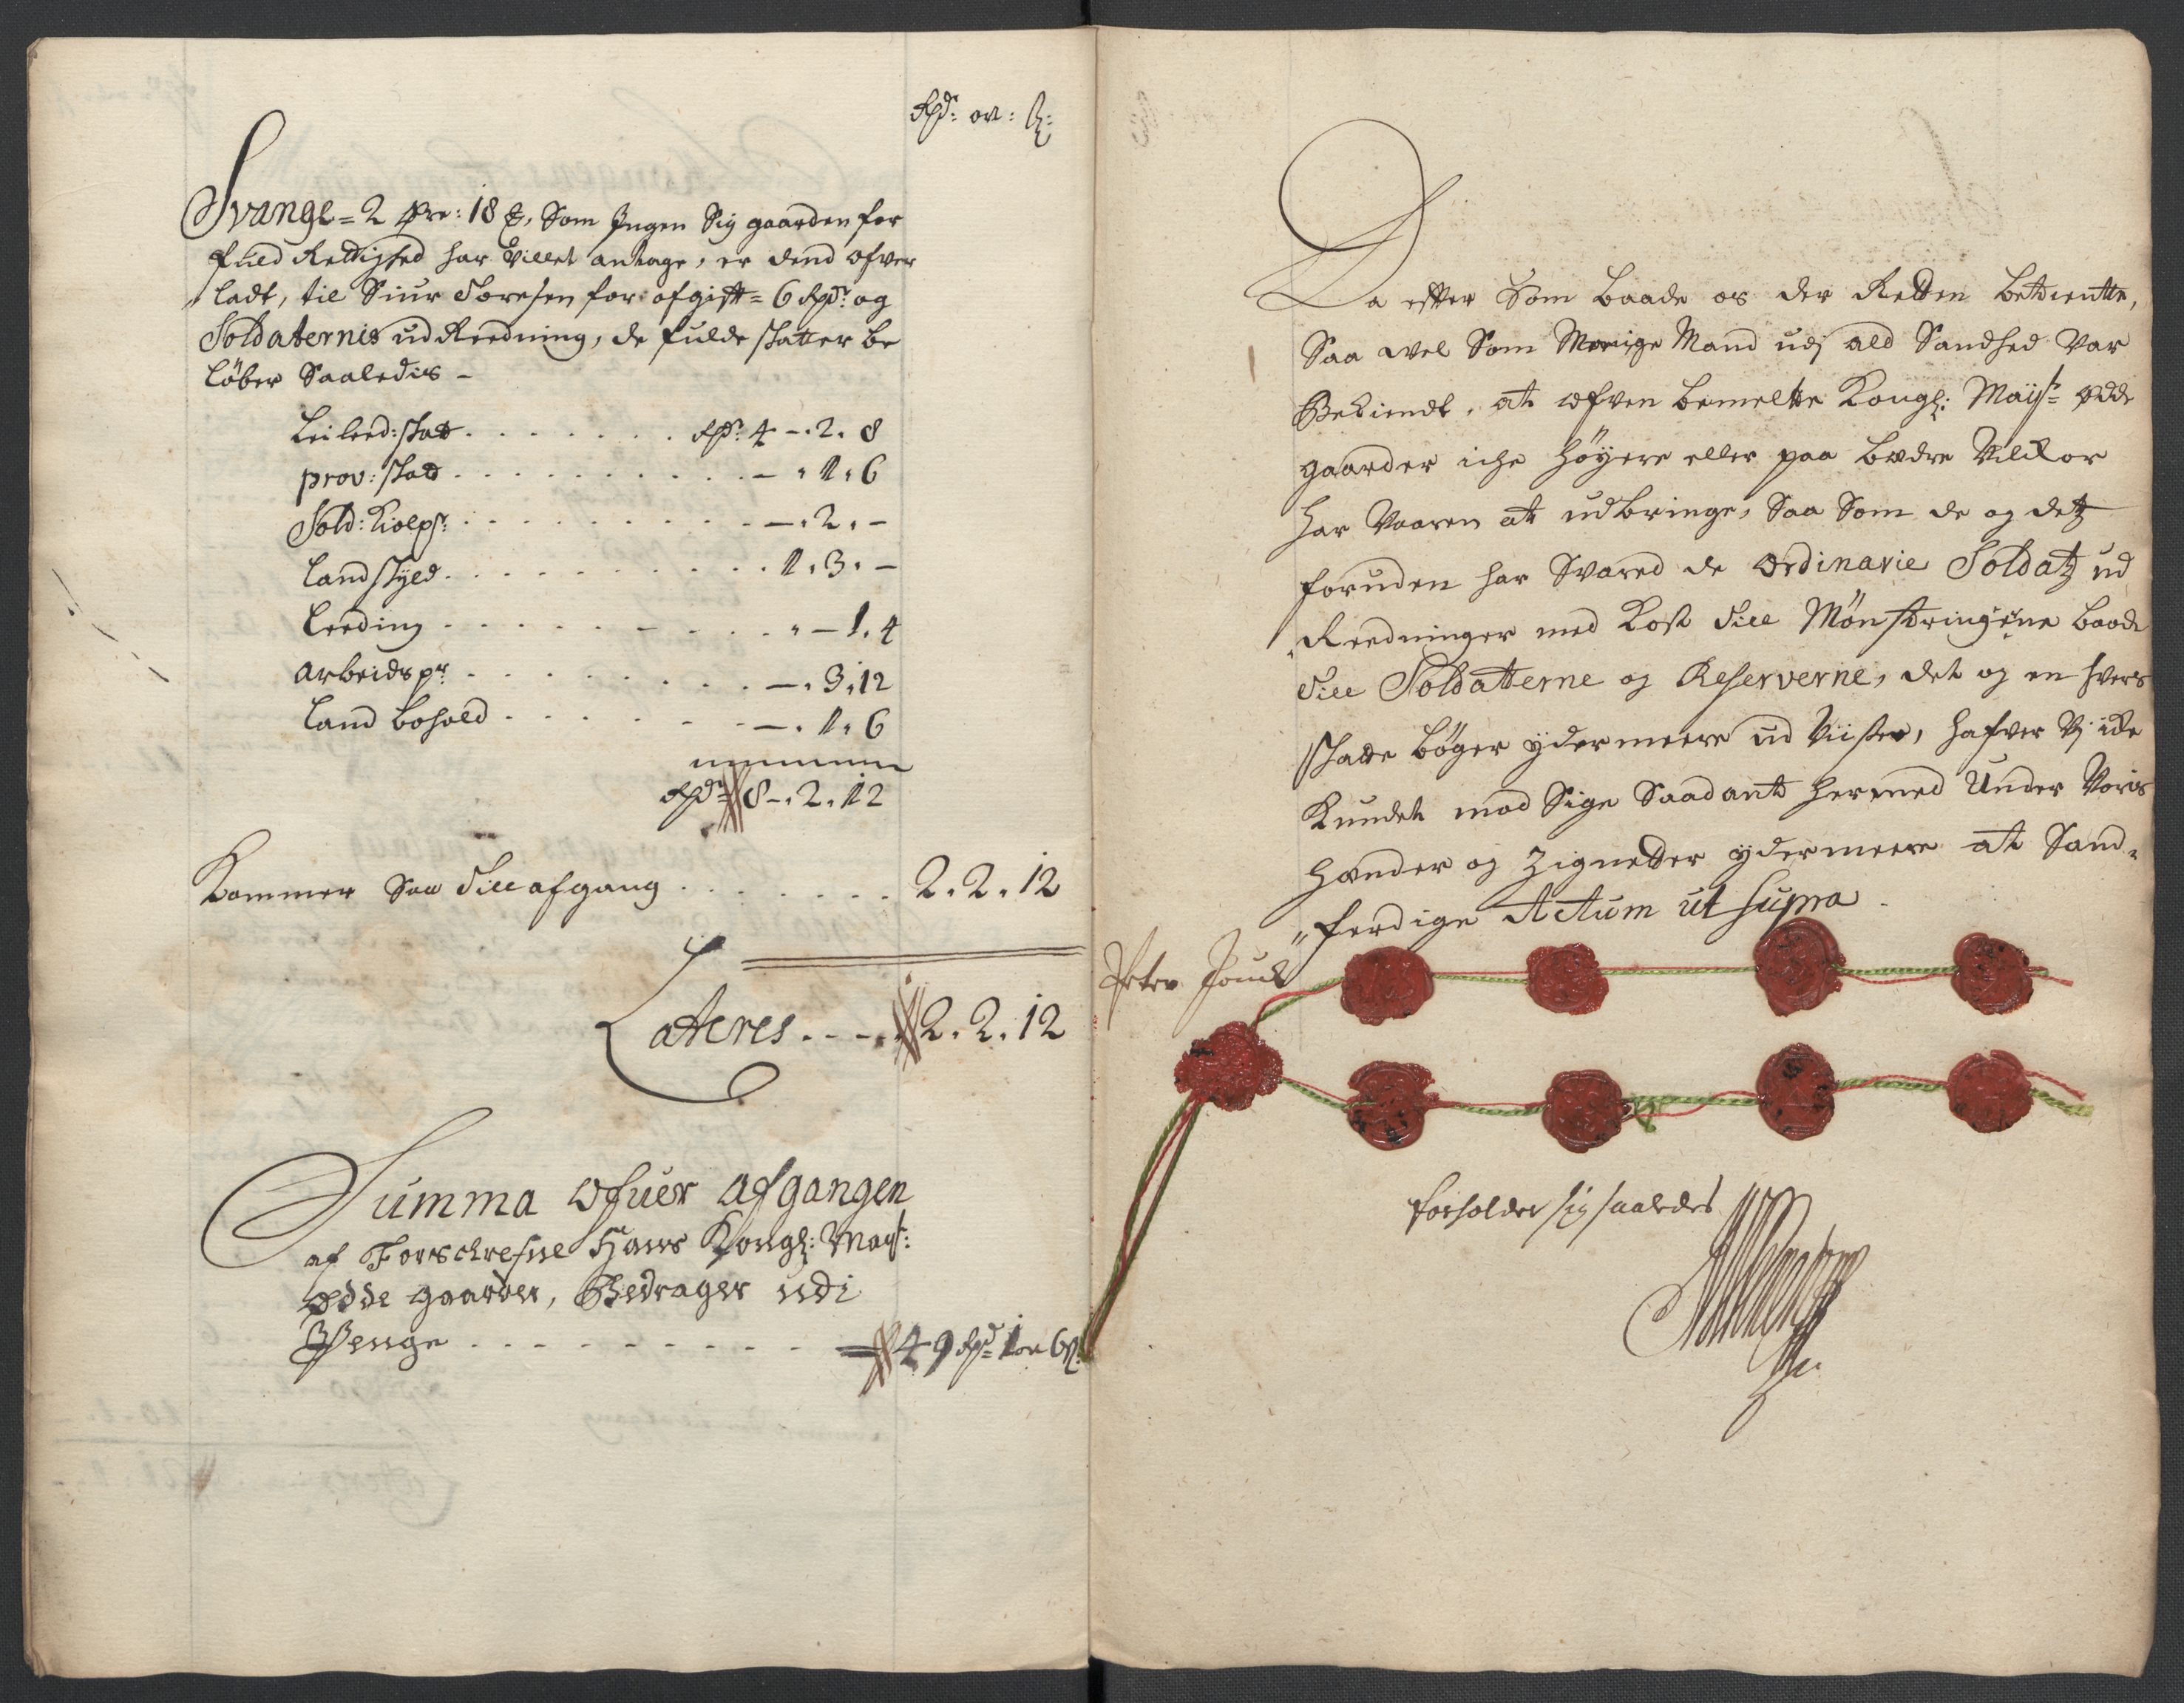 Rdr: ort: ß:
Svange = 2 pr: 18 ℔, Som Ingen Sig gaarden for
fuld Rettighed har villet antage, er dend ofver
ladt, til Siur Toresen for afgift = 6 Rdr: og
Soldaternis udReedning, de fulde skatter be
løber Saaledis -
Leilend: skatt . . . . . . . Rdr: 4 - . 2 . 8
prov: skatt . . . . . . . . . - . 1 . 6
Sold: Kiolepr: . . . . . . . . . - . 2 . -
Landskyld . . . . . . . . . . 1 . 3 . -
Leeding . . . . . . . . . . - 1 . 4
Arbeidspr . . . . . . . . - . 3 . 12
Land bohold . . . . . . . - . 1 . 6
Rdr = 8 - . 2 . 12
Kommer Saa till afgang . . . . . . . 2 . 2 . 12
Lateres . . - - . 2 . 2 . 12
Summa ofuer afgangen
af Forschrefne Hans Kongl: Mayt:
ødde gaarder, Bedrager udi
Penge . . . . . . . . . = 49 Rdr = 1 ort 6 ß:
Da effter Som baade os der Retten betiente,
Saa vel Som Menige Mand udj ald Sandhed Var
Bekiendt, at ofven bemelte Kongl: Mayst = ødde
gaarder iche höyere eller paa bedre Vilckor
har Vaaren at udbringe, Saa Som de og detz
foruden har Svared de Ordinarie Soldatz ud
Reedninger med Kost till Mönstringene baade
till Soldatterne og Reserverne, det og en hvers
Skatte bøger ydermeere ud viiser, hafver Vj icke
Kundet mod Sige Saadant hermed Under Voris
Hænder og Zignetter ydermeere at Sand-
ferdige Actum ut Supra -
Peter
forholder sig saaledes